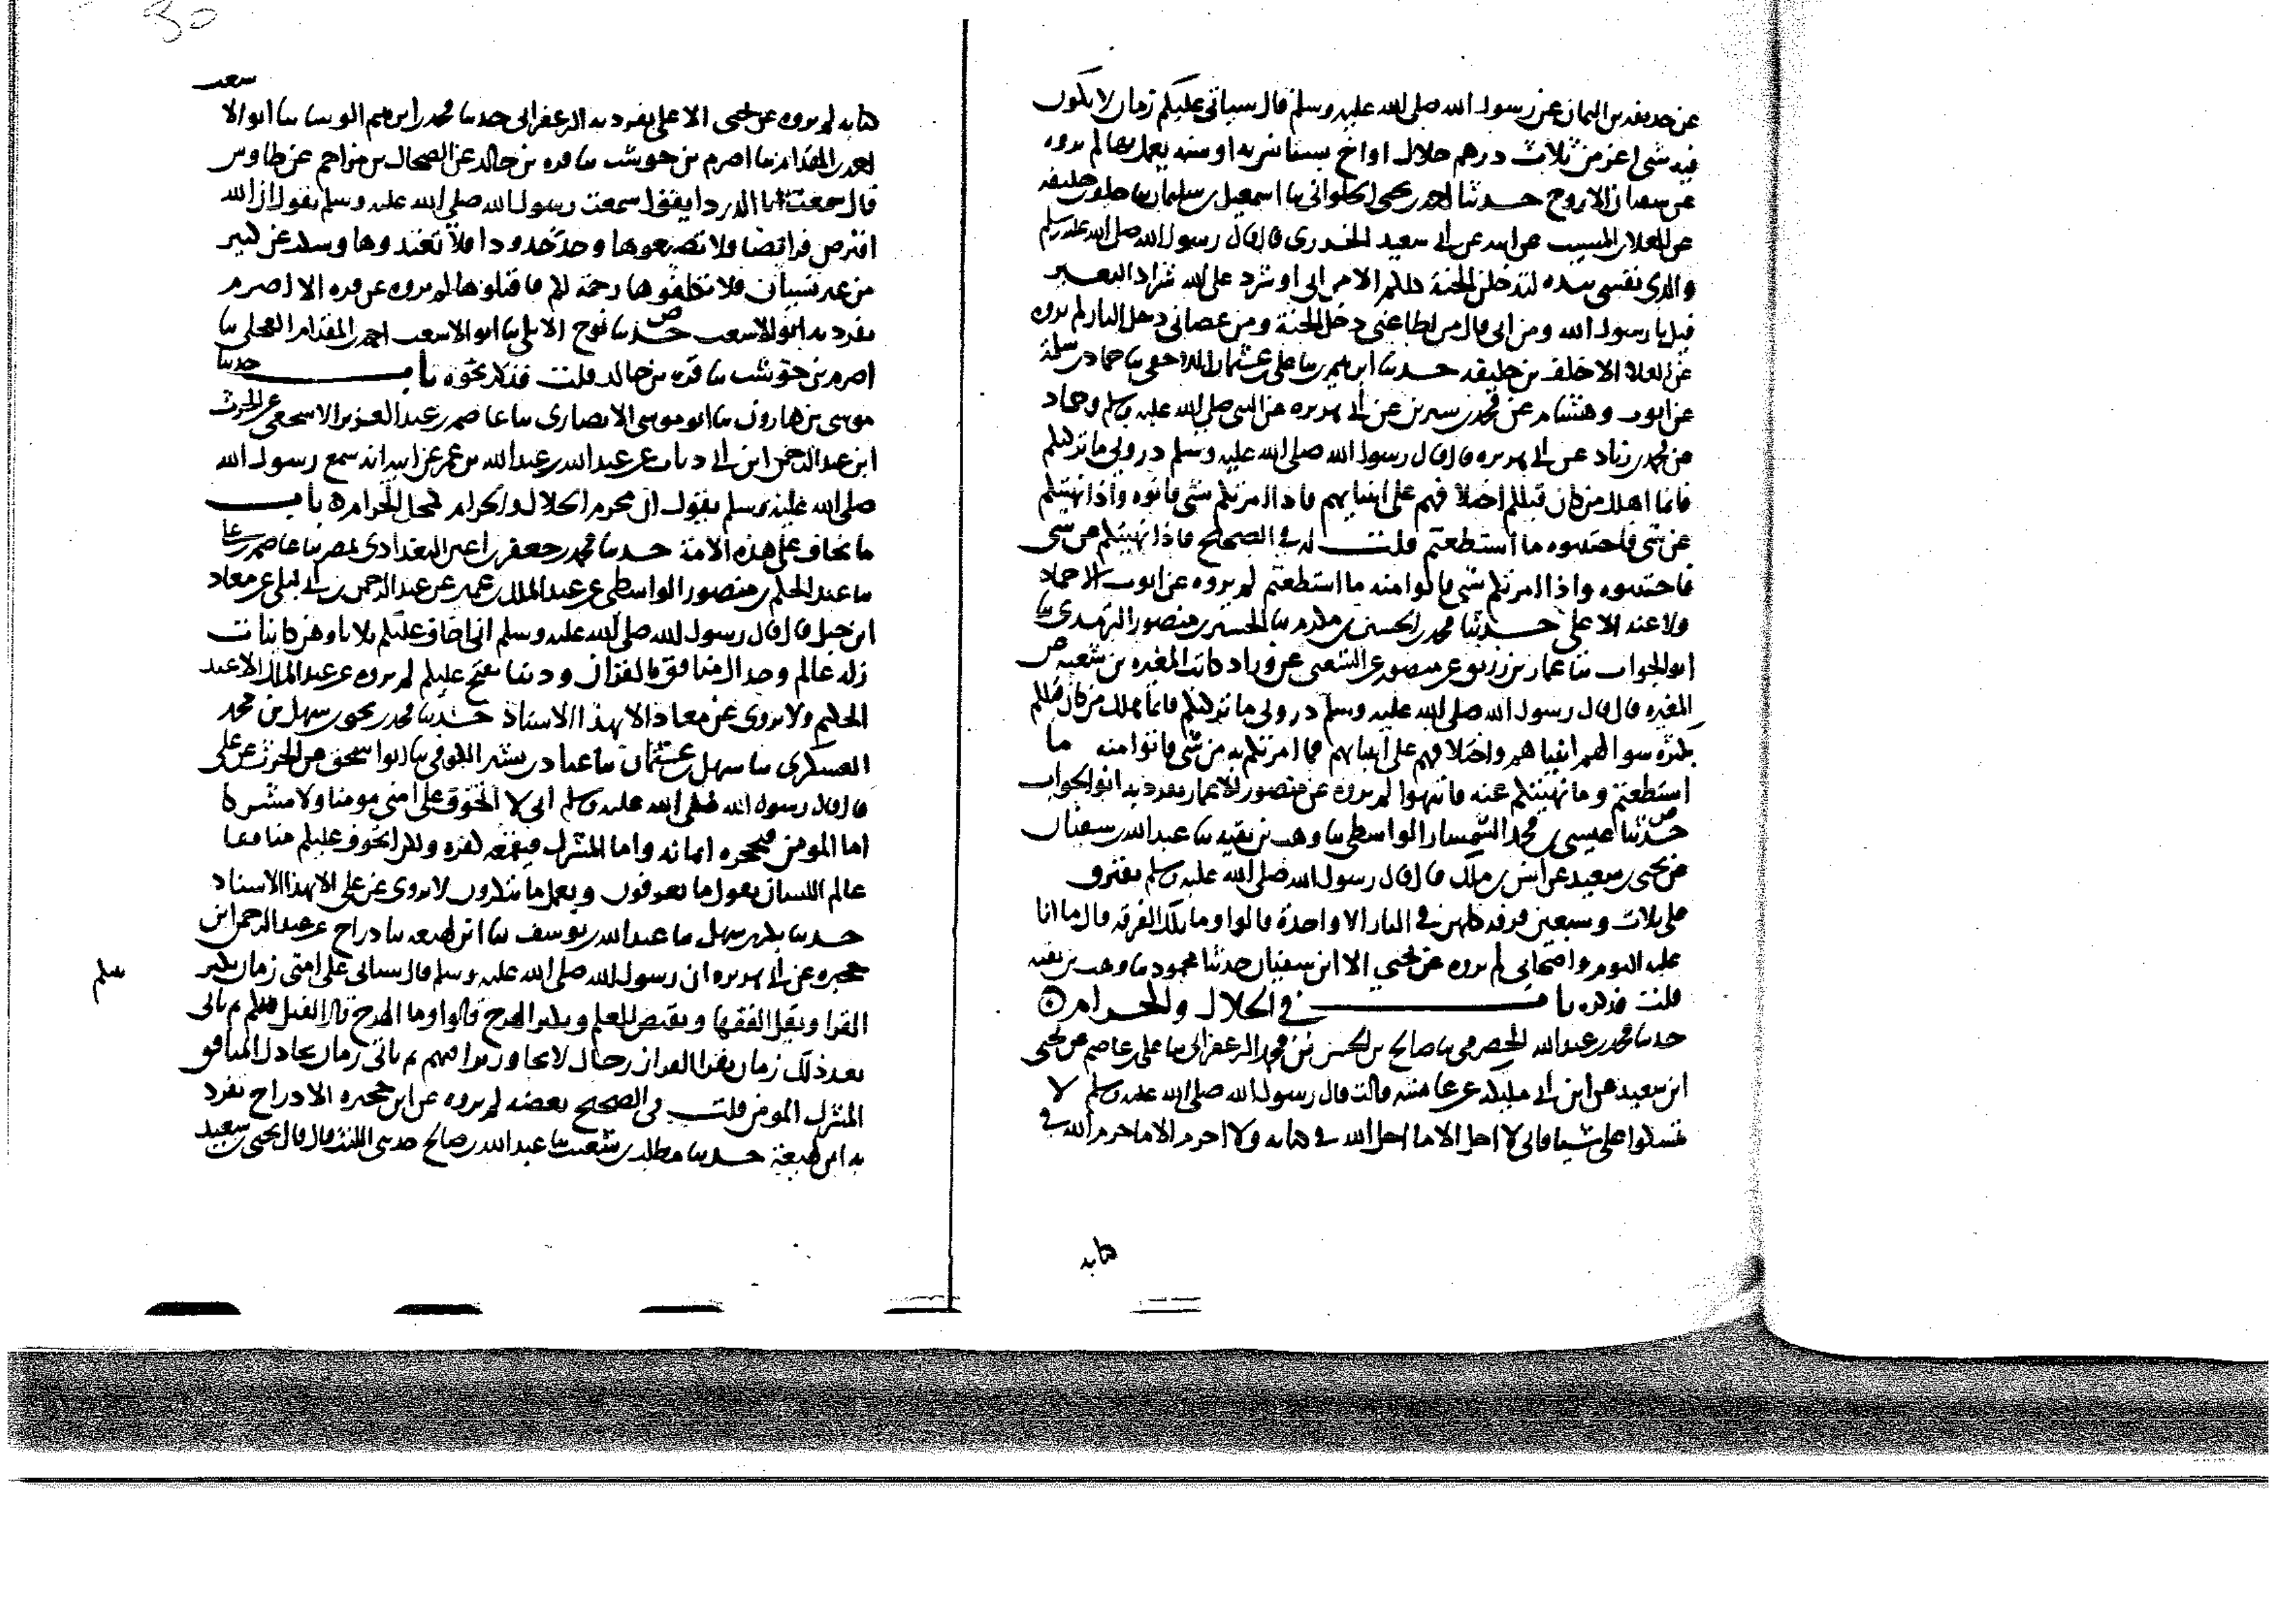 عن حذيفه بن اليمان عن رسول الله صلى الله عليه وسلم قال سياتى عليكم زمان لا يكون
فيه شى اعز من ثلاث درهم حلال او اخ يستانس به او سنه يعمل بها لم يروه
عن سفيان الا روح حـدثنا احمد بن يحيى الحلوانى ثنا اسمعيل بن سليمان ثنا خلف بن خليفه
عن العلا بن المسيب عن ابيه عن ابى سعيد الخدرى قال قال رسول الله صلى الله عليه وسلم
والذى نفسى بيده لتدخلن الجنة كلكم الا من ابى او شرد على الله شراد البعير
قيل يا رسول الله ومن ابى قال من اطاعنى دخل الجنة ومن عصانى دخل النار لم يروه
عن العلا الا خلف بن خليفه حـدثنا ابرهيم ثنا على بن عثمان اللاحقى ثنا حماد بن سلمة
عن ايوب وهشام عن محمد بن سيرين عن ابى هريره عن النبى صلى الله عليه وسلم وحماد
عن محمد بن زياد عن ابى هريره قال قال رسول الله صلى الله عليه وسلم ذرونى ما تركتكم
فانما اهلك من كان قبلكم اختلافهم على انبيايهم فاذا امرتكم بشى فاتوه واذا نهيتكم
عن شى فاجتنبوه ما استطعتم قلت له فى الصحاح فاذا نهيتكم عن شى
فاجتنبوه واذا امرتكم بشى فاتوا منه ما استطعتم لم يروه عن ايوب الا حماد
ولا عنه الا على حـدثنا محمد بن الحسين بن مكرم ثنا الحسين بن منصور ثنا
ابو الجواب ثنا عمار بن رزيق عن منصور عن الشعبى عن وراد كاتب المغيره بن شعبه عن
المغيره قال قال رسول الله صلى الله عليه وسلم ذرونى ما تركتكم فانما هلك من كان قبلكم
بكثره سوالهم انبياهم واختلافهم على انبيايهم فما امرتكم به من شى فاتوا منه ما
استطعتم وما نهيتكم عنه فانتهوا لم يروه عن منصور الا عمار تفرد به ابو الجواب
حدثنا عيسى بن محمد السمسار الواسطى ثنا وهب بن بقيه ثنا عبد الله بن سفيان
عن يحيى بن سعيد عن انس بن ملك قال قال رسول الله صلى الله عليه وسلم تفترق
على ثلاث وسبعين فرقه كلهن فى النار الا واحدة قالوا وما تلك الفرقه قال ما انا
عليه اليوم واصحابى لم يروه عن يحيى الا ابن سفيان حدثنا محمود ثنا وهب بن بقيه
قلت فذكره باب فى الحلال والحرام
حدثنا محمد بن عبد الله الحضرمى ثنا صالح بن الحسن بن محمد الزعفرانى ثنا على بن عاصم عن يحيى
ابن سعيد عن ابن ابى مليكه عن عائشه قالت قال رسول الله صلى الله عليه وسلم لا
تمسكوا على شيا فانى لا احل الا ما احل الله فى كتابه ولا احرم الا ما حرم الله فى
كتابه
كتابه لم يروه عن يحيى الا على تفرد به الزعفرانى حدثنا محمد بن ابرهيم ثنا ابو الا
سعث
احمد بن المقدام ثنا اصرم بن حوشب ثنا قره بن خالد عن الضحاك بن مزاحم عن طاوس
قال سمعت ابا الدردا يقول سمعت رسول الله صلى الله عليه وسلم يقول ان الله
افترض فرائضا فلا تضيعوها وحد حدودا فلا تعتدوها وسكت عن كثير
من غير نسيان فلا تكلفوها رحمة لكم فاقبلوها لم يروه عن قره الا اصرم
تفرد به ابو الاشعث حـدثنا نوح الابلى ثنا ابو الاشعث احمد بن المقدام العجلى ثنا
اصرم بن حوشب ثنا قره بن خالد قلت فذكر نحوه باب حدثنا
موسى بن هارون ثنا ابو موسى الانصارى ثنا عاصم بن عبد العزيز الاشجعى عن الحرث
ابن عبد الرحمن ابن ابى ذباب عن عبد الله بن عبد الله بن عمر عن ابيه انه سمع رسول الله
صلى الله عليه وسلم يقول ان محرم الحلال كمحل الحرام باب
ما يخاف على هذه الامة حـدثنا محمد بن جعفر بن اعين البغدادى بمصر ثنا عاصم بن على
ثنا عبد الحكيم بن منصور الواسطى عن عبد الملك بن عمير عن عبد الرحمن بن ابى ليلى عن معاذ
ابن جبل قال قال رسول الله صلى الله عليه وسلم انى اخاف عليكم ثلاثا وهن كائنات
زلة عالم وجدال منافق بالقران ودنيا تفتح عليكم لم يروه عن عبد الملك الا عبد
الحكيم ولا يروى عن معاذ الا بهذا الاسناد حـدثنا محمد بن يحيى بن سهل بن محمد
العسكرى ثنا سهل بن عثمان ثنا عباد بن بشر الكوفى ثنا ابو اسحق عن الحرث عن على
قال قال رسول الله صلى الله عليه وسلم انى لا اتخوف على امتى مومنا ولا مشركا
اما المومن فيحجزه ايمانه واما المشرك فيقمعه كفره ولكن اتخوف عليكم منافقا
عالم اللسان يقول ما تعرفون ويعمل ما تنكرون لا يروى عن على الا بهذا الاسناد
حـدثنا بكر بن سهل ثنا عبد الله بن يوسف ثنا ابن لهيعه ثنا دراج عن عبد الرحمن ابن
حجيره عن ابى هريره ان رسول الله صلى الله عليه وسلم قال سياتى على امتى زمان يكثر
القرا ويقل الفقها ويقبض العلم ويكثر الهرج قالوا وما الهرج قال القتل بينكم ثم ياتى
بعد ذلك زمان يقرا القران رجال لا يجاوز تراقيهم ثم ياتى زمان يجادل المنافق
المشرك المومن قلت فى الصحيح بعضه لم يروه عن ابن حجيره الا دراج تفرد
به ابن لهيعة حـدثنا مطلب بن شعيب ثنا عبد الله بن صالح حدثنى الليث قال قال يحيى بن سعيد